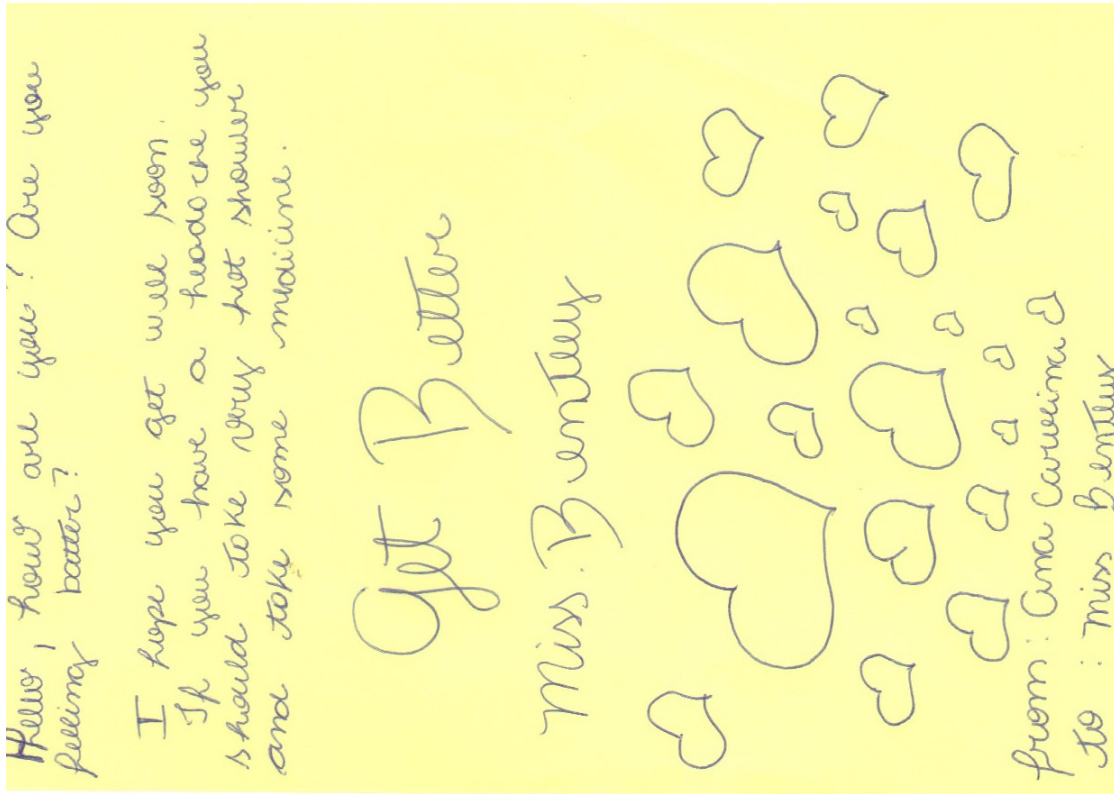 Hello, how are you? Are you
felling batter?
I hope you get well soon.
If you have a headache you
should take very hot shower
and take some medicine.
Get Better
Miss. Bentley
from: Ana Carolina
to: Miss Bentley